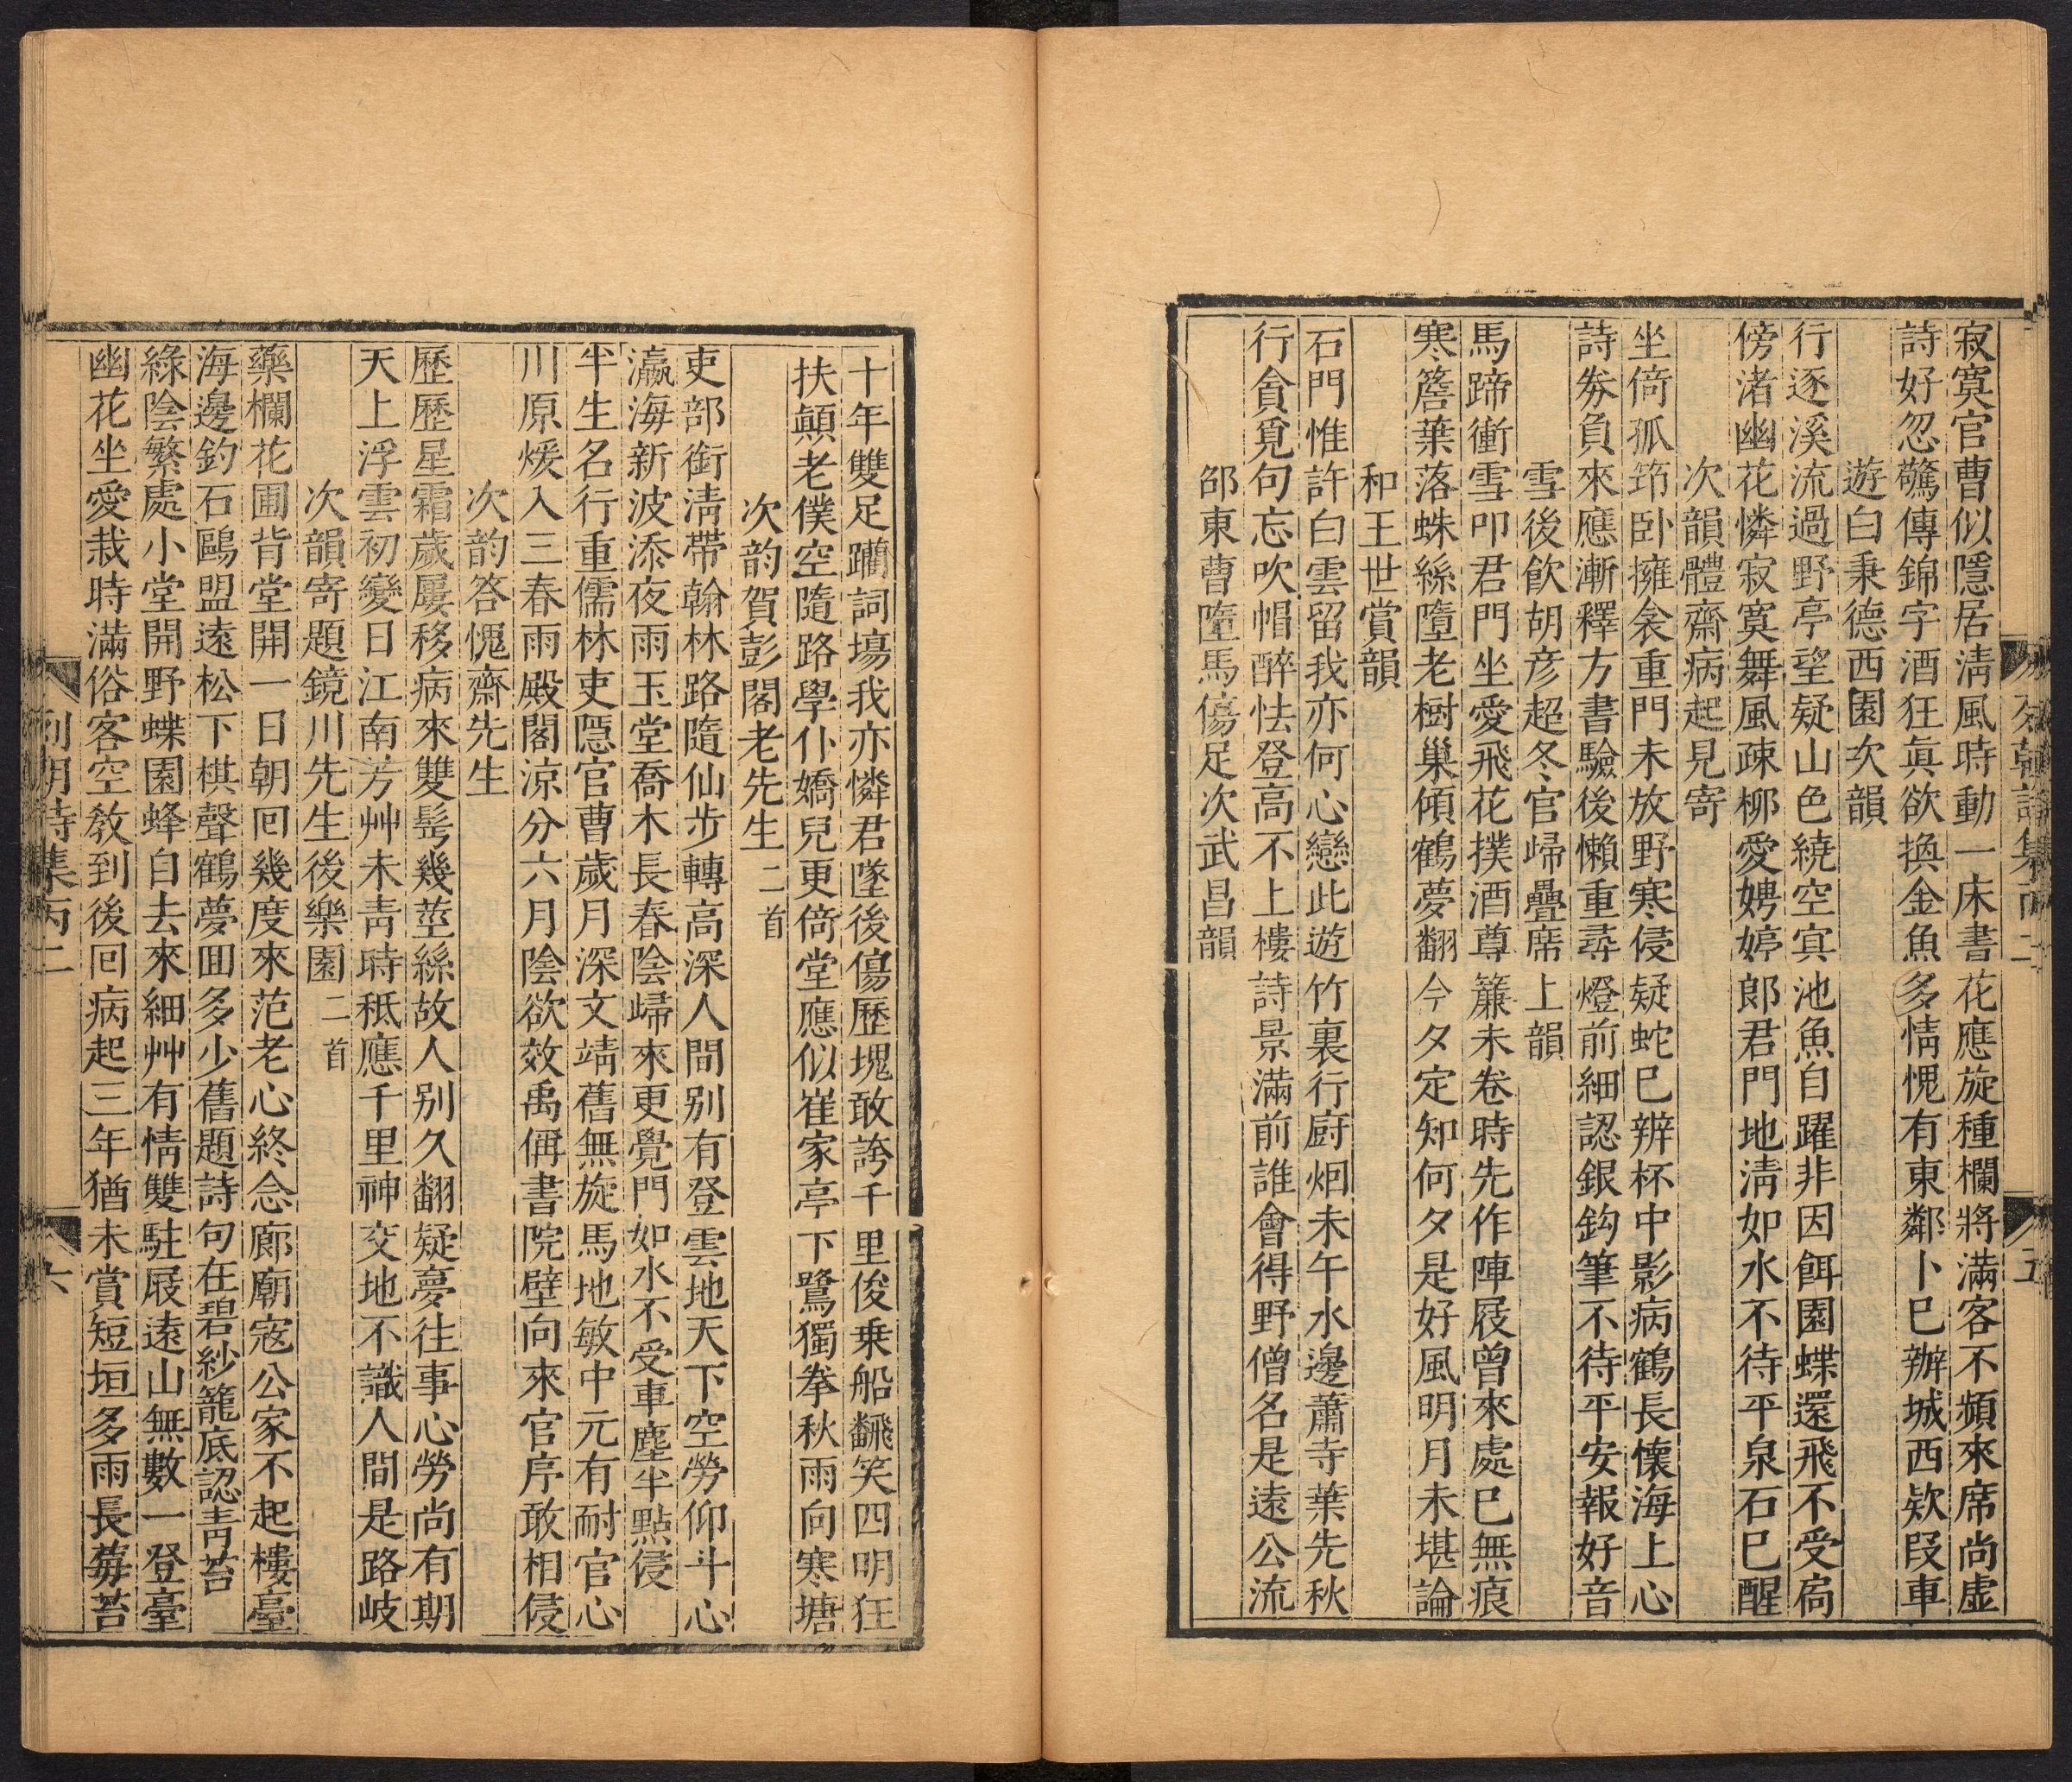 寂寞官曹似隱居淸風時動一床書花應旋種欄將滿客不頻來席尚虛
詩好忽驚傳錦字酒狂眞欲換金魚多情愧有東鄰卜巳辦城西欵叚車
遊白秉德西園次韻
行逐溪流過野亭望疑山色繞空冥池魚自躍非因餌園蝶還飛不受扃
傍渚幽花憐寂寞舞風疎柳愛娉婷郎君門地淸如水不待平泉石巳醒
次韻體齋病起見寄
坐倚孤筇卧擁衾重門未放野寒侵疑蛇巳辨杯中影病鶴長懷海上心
詩劵負來應漸釋方書驗後懶重尋燈前細認銀鈎筆不待平安報好音
雪後飮胡彦超冬官歸疊席上韻
馬蹄衝雪叩君門坐愛飛花撲酒尊簾未卷時先作陣屐曾來處巳無痕
寒簷葉落蛛絲墮老樹巢傾鶴夢翻今夕定知何夕是好風明月未堪論
和王世賞韻
石門惟許白雲留我亦何心戀此遊竹裏行廚烟未午水邊蕭寺葉先秋
行貪覓句忘吹帽醉怯登高不上樓詩景滿前誰會得野僧名是遠公流
邵東曹墮馬傷足次武昌韻
十年雙足躪詞塲我亦憐君墜後傷歷塊敢誇千里俊乗船翻笑四明狂
扶顛老僕空隨路學仆嬌兒更倚堂應似崔家亭下鷺獨拳秋雨向寒塘
次韵賀彭閣老先生二首
吏部銜淸帶翰林路隨仙步轉高深人間別有登雲地天下空勞仰斗心
瀛海新波添夜雨玉堂喬木長春陰歸來更覺門如水不受車塵半點侵
半生名行重儒林吏隱官曹歲月深文靖舊無旋馬地敏中元有耐官心
川原煖入三春雨殿閣涼分六月陰欲效禹偁書院壁向來官序敢相侵
次韵答愧齋先生
歷歷星霜歲屢移病來雙髩幾莖絲故人別久翻疑夢往事心勞尚有期
天上浮雲初變日江南芳艸未靑時秪應千里神交地不識人間是路岐
次韻寄題鏡川先生後樂園二首
藥欄花圃背堂開一日朝回幾度來范老心終念廊廟寇公家不起樓臺
海邊釣石鷗盟遠松下棋聲鶴夢回多少舊題詩句在碧紗籠底認靑苔
綠陰繁處小堂開野蝶園蜂自去來細艸有情雙駐屐遠山無數一登臺
幽花坐愛栽時滿俗客空敎到後回病起三年猶未賞短垣多雨長莓苔
列朝詩集丙二
六